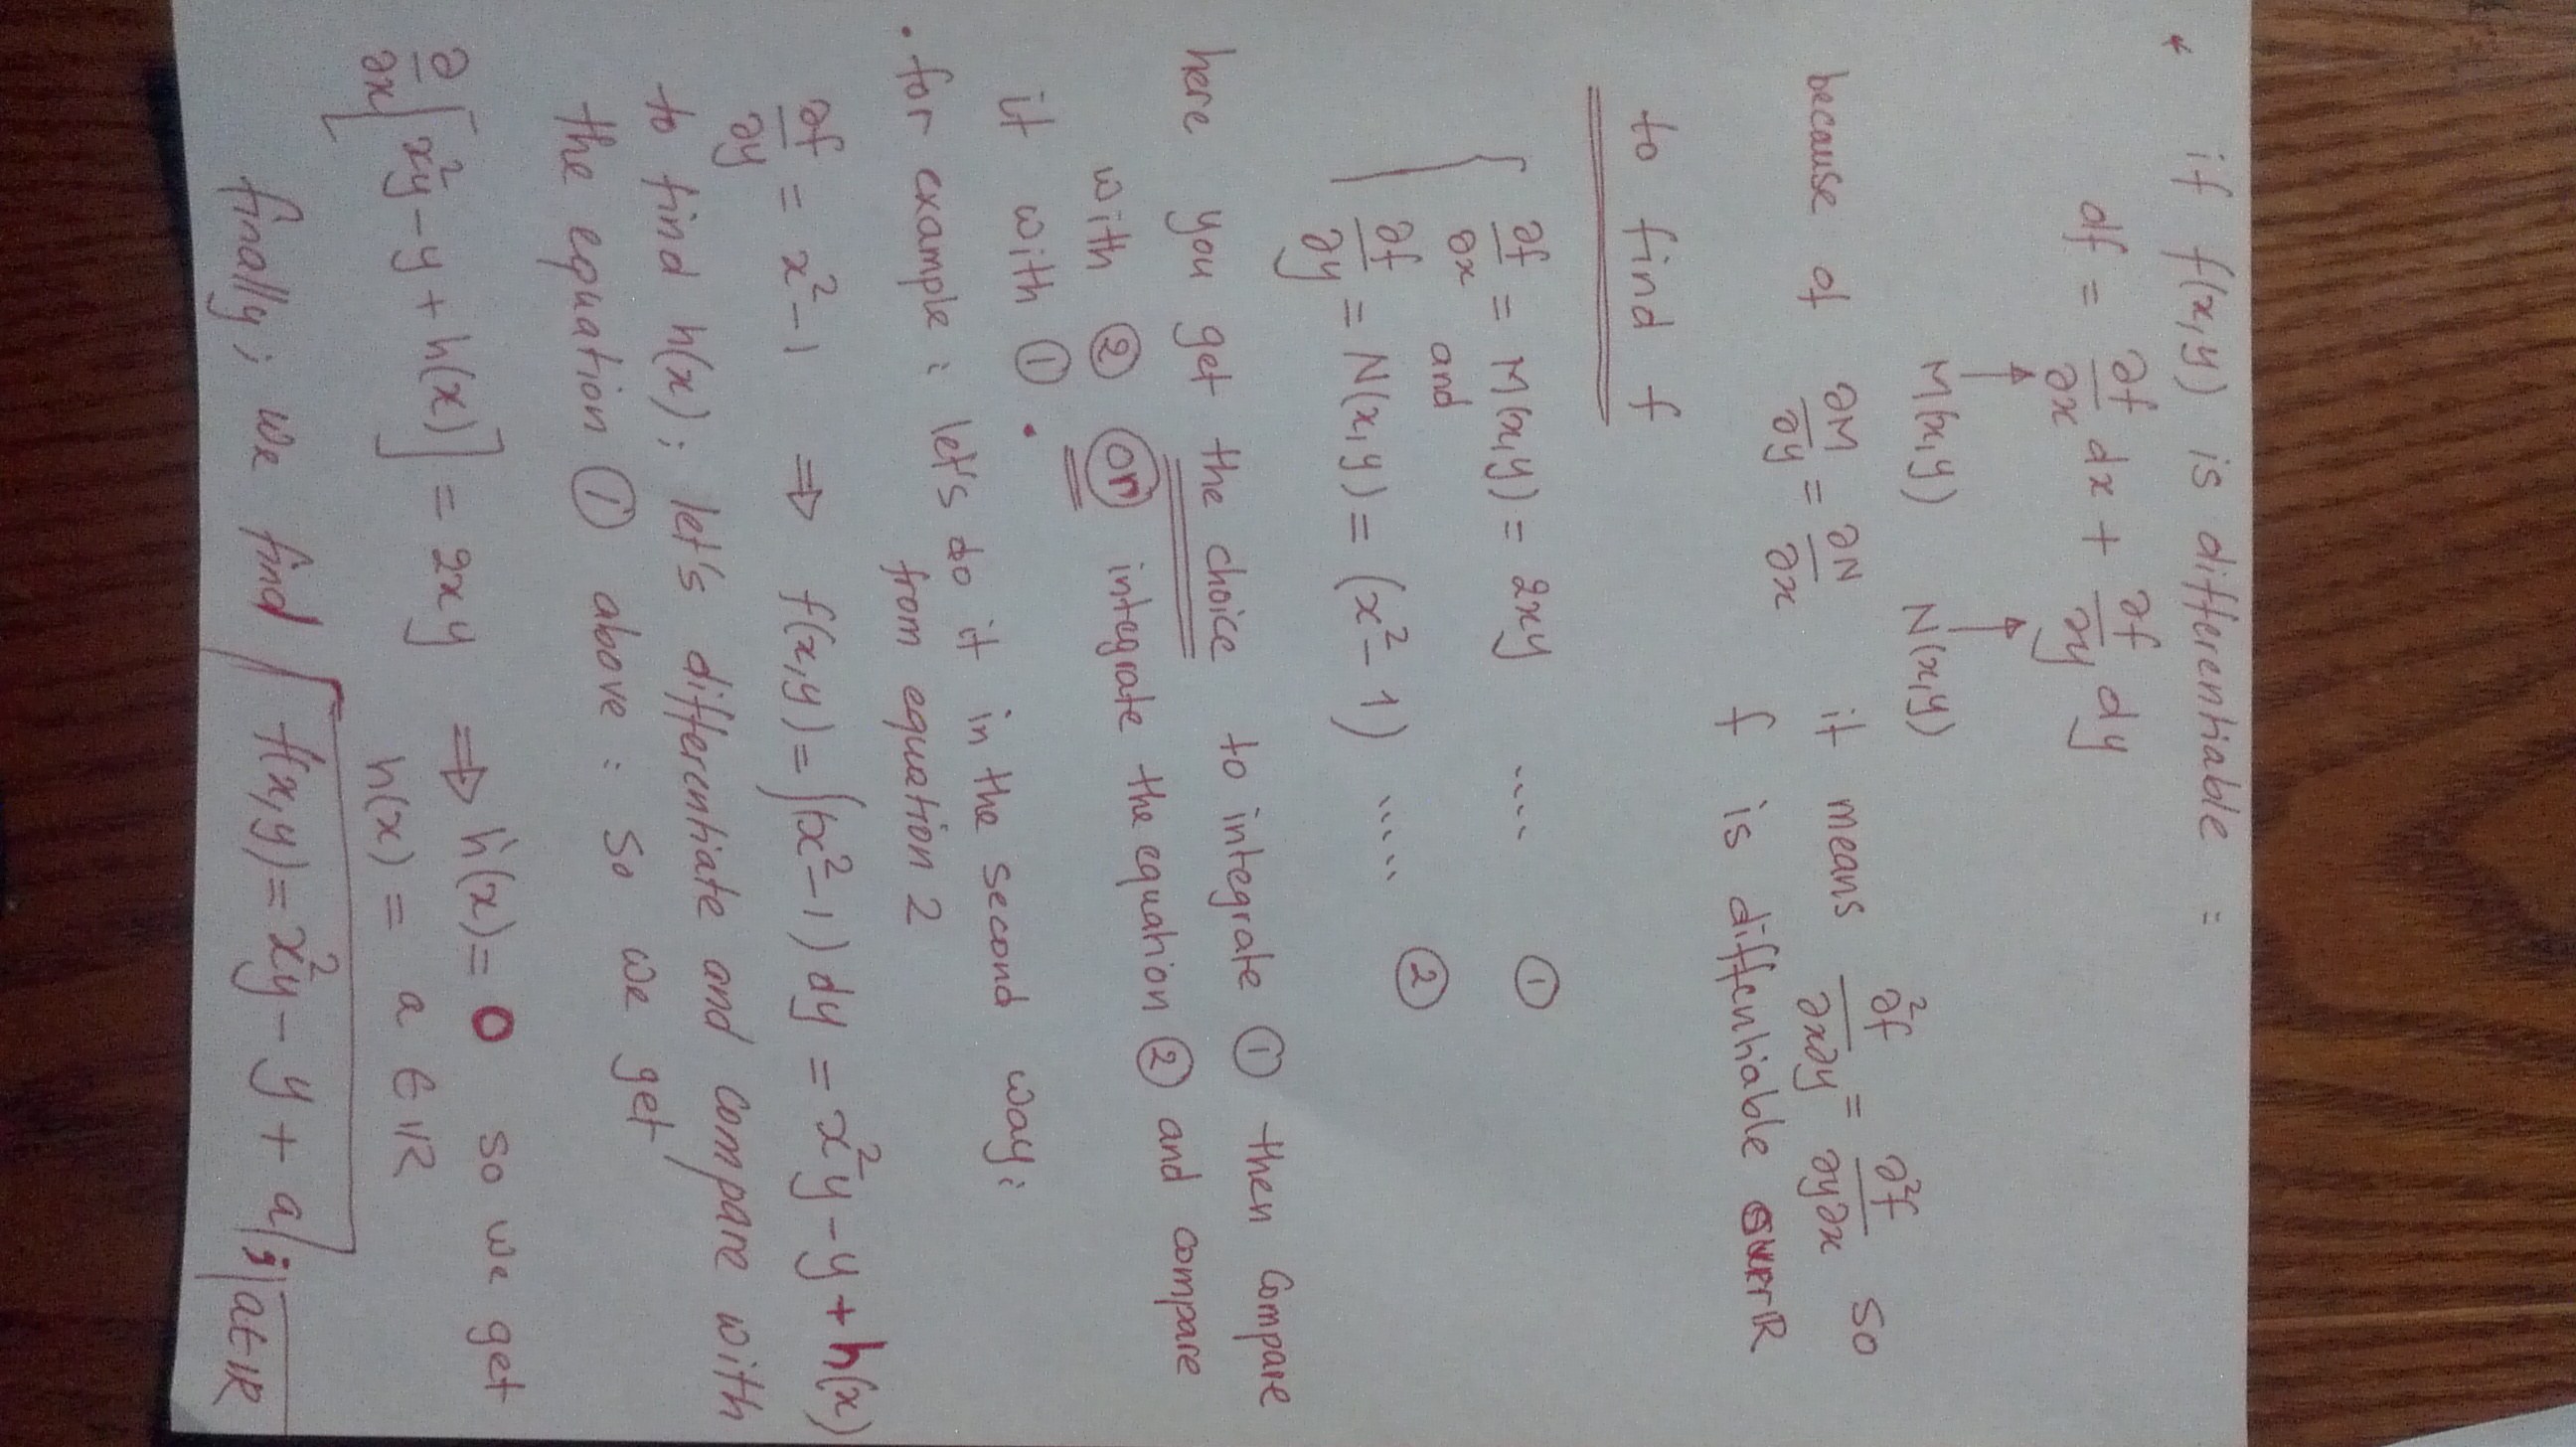 * if f(x,y) is differentiable :
df = ∂f/∂x dx + ∂f/∂y dy
M(x,y) N(x,y)
because of ∂M/∂y = ∂N/∂x it means ∂²f/∂x∂y = ∂²f/∂y∂x so
f is differentiable over ℝ
to find f
{ ∂f/∂x = M(x,y) = 2xy .... ①
and
∂f/∂y = N(x,y) = (x² - 1) ..... ②
here you get the choice to integrate ① then compare
with ② or integrate the equation ② and compare
it with ① .
. for example : let's do it in the second way :
from equation 2
∂f/∂y = x² - 1 ⇒ f(x,y) = ∫(x² - 1) dy = x²y - y + h(x)
to find h(x) ; let's differentiate and compare with
the equation ① above : so we get
∂/∂x [x²y - y + h(x)] = 2xy ⇒ h'(x) = 0 so we get
h(x) = a ∈ ℝ
finally ; we find f(x,y) = x²y - y + a ; a ∈ ℝ